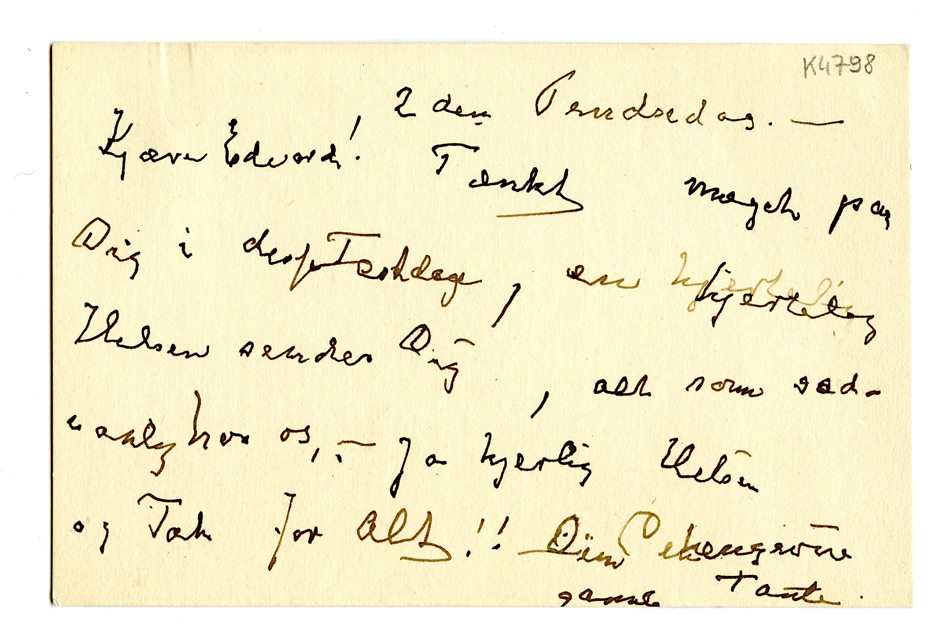 K4798
2 den Pindsedag. —
Kjære Edvard! Tænkt meget paa
Dig i disse Festdage, en hjertelig
Hilsen sendes Dig, alt som sæd-
vanlig hos os, – Ja hjerlig Hilsen
og Tak for Alt!! Din hengivne
gamle Tante.